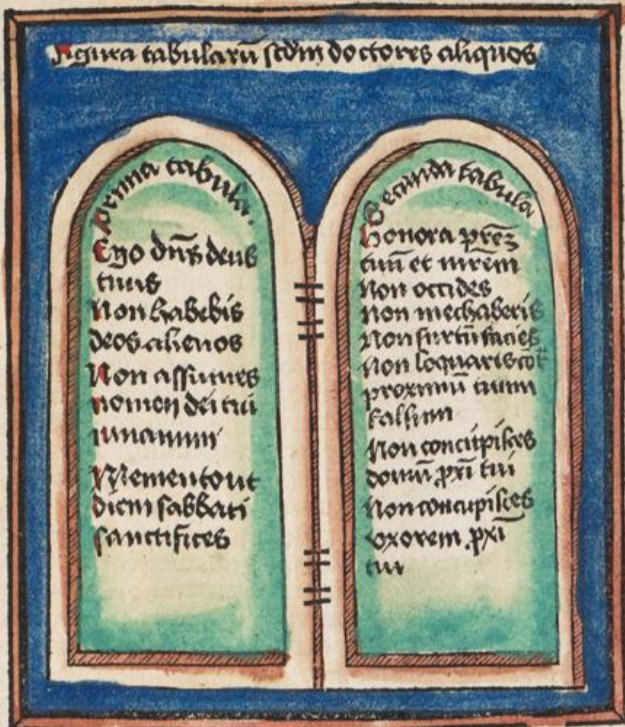 Figura tabularū scdm doctores aliquos
Prima tabula.
Ego dns deus
tuus
Non habebis
deos alienos
Non assumes
nomen dei tui
in vanum
Memento ut
diem sabbati
sanctifices
Secunda tabula
Honora prēz
tuū et mrēm
Non occides
Non mechaberis
Non furtū facies
Non loquaris
proximū tuum
falsum
Non concupisces
domū pxi tui
Non concupisces
vxorem pxi
tui